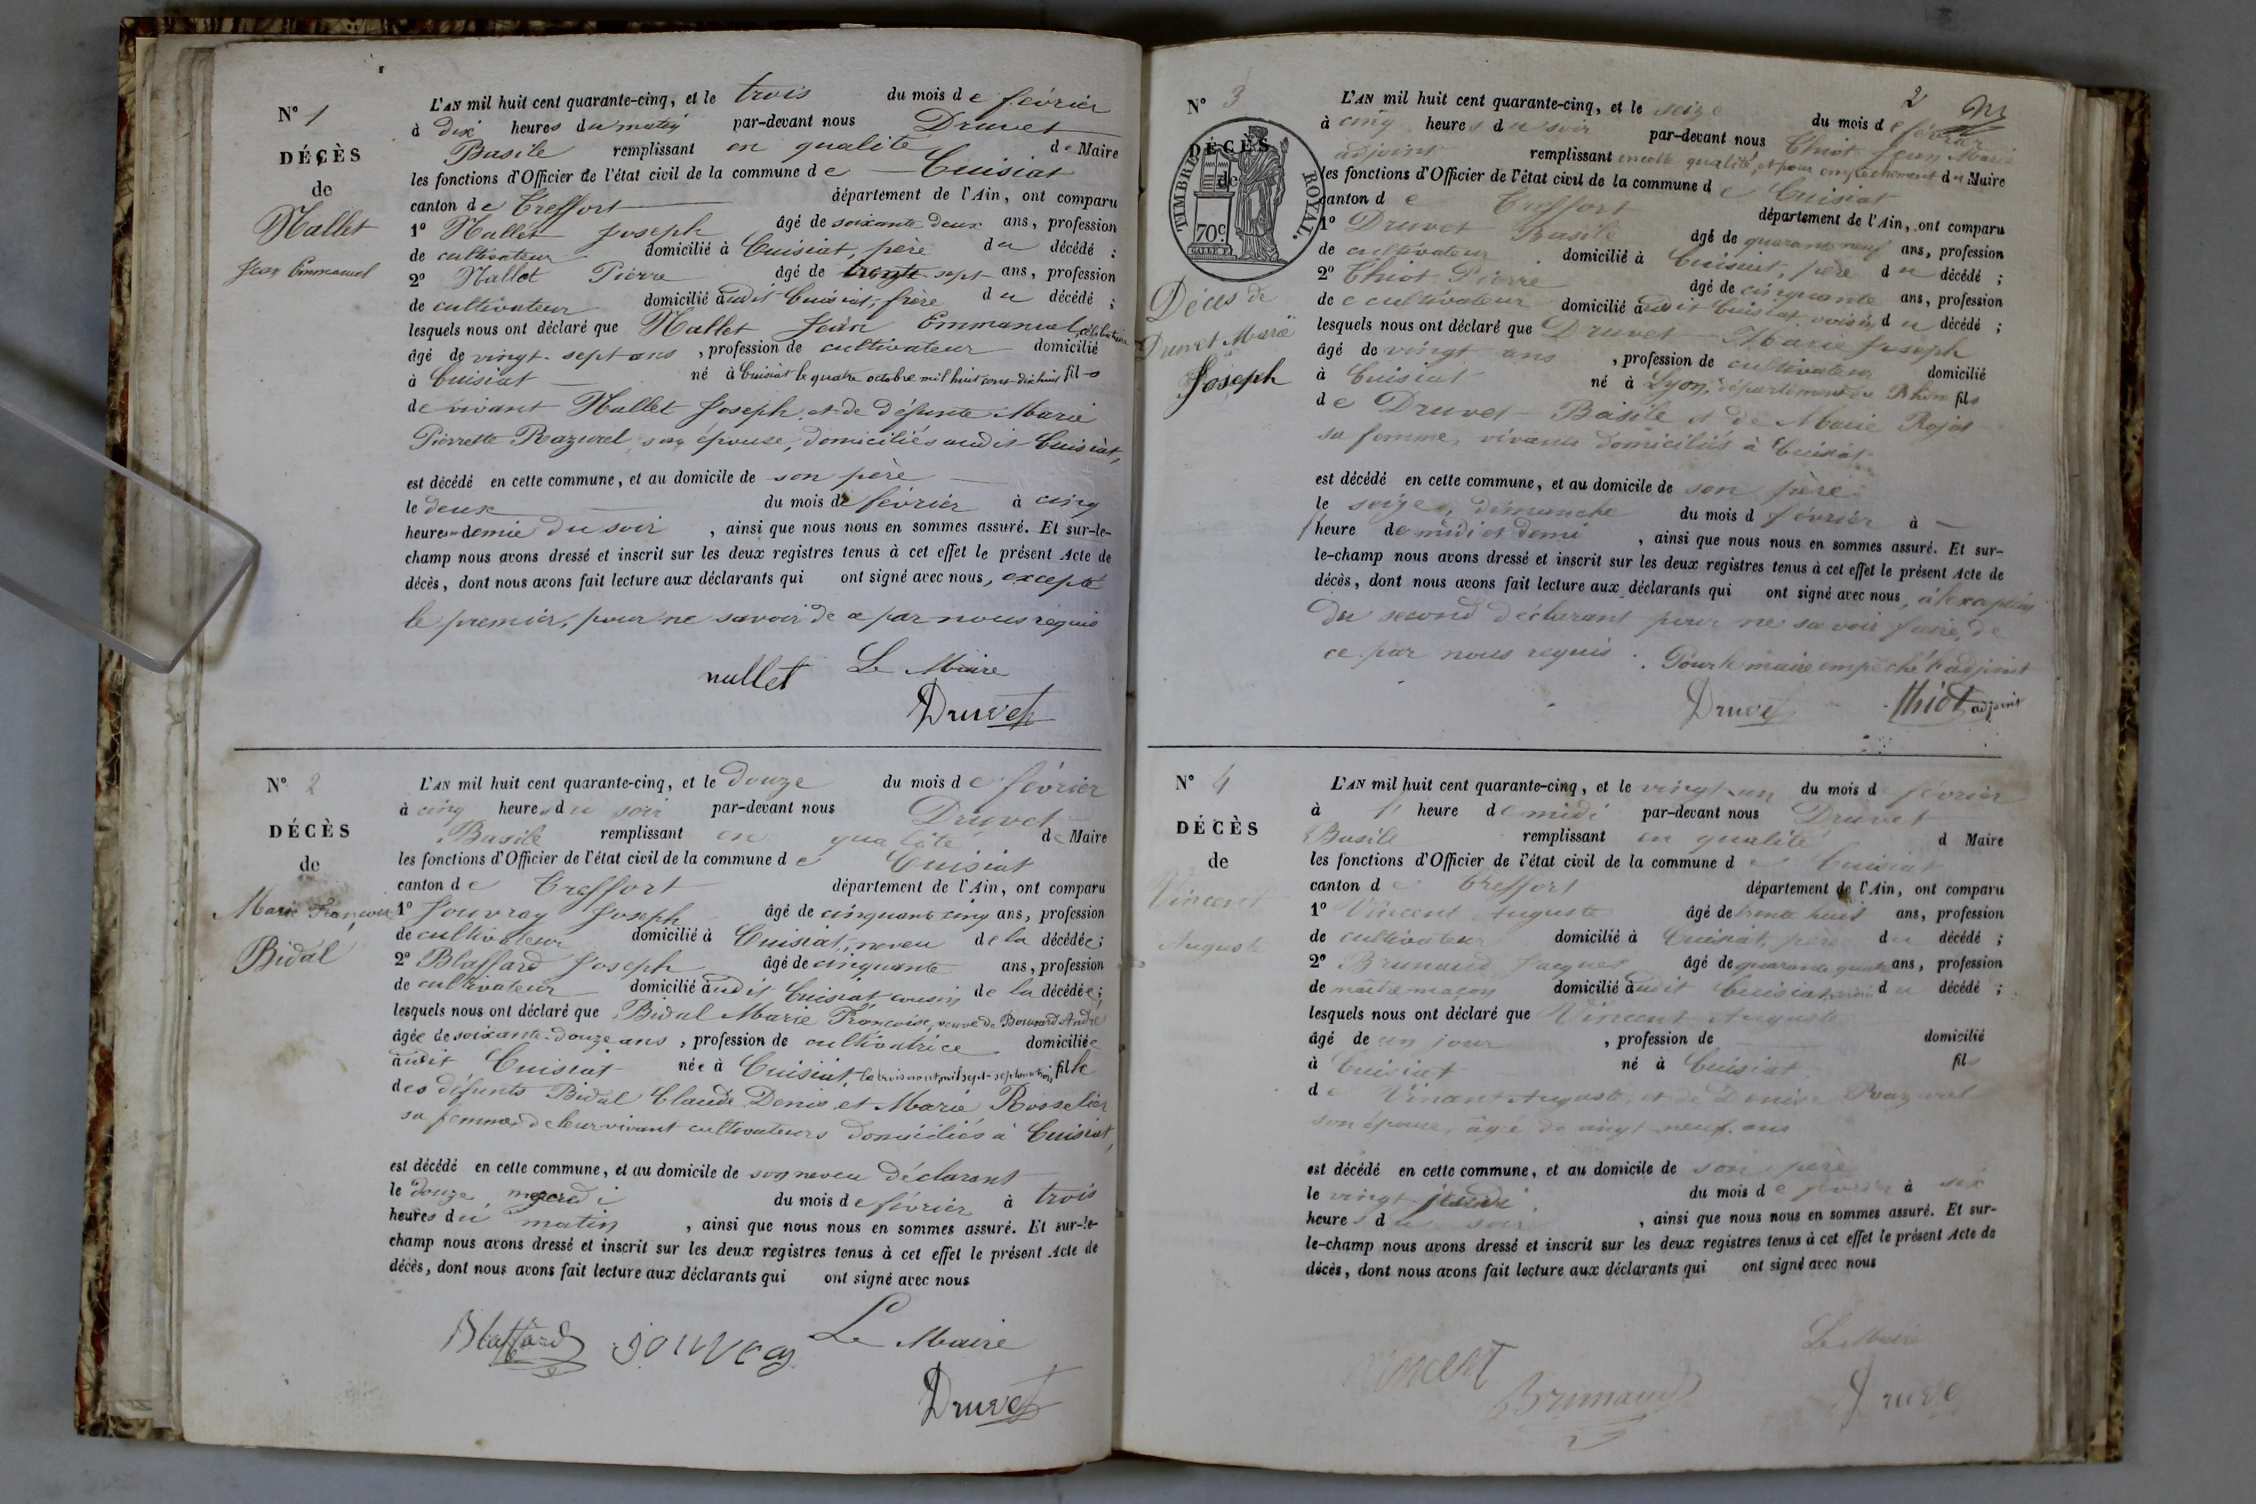 N° 1
DÉCÈS
de
Nallet
Jean Emmanuel
L'AN mil huit cent quarante-cinq, et le trois du mois de février
à dix heures du matin par-devant nous Druvet
Basile remplissant en qualité de Maire
les fonctions d'Officier de l'état civil de la commune de Cuisiat
canton de Treffort département de l'Ain, ont comparu
1° Nallet Joseph âgé de soixante deux ans, profession
de cultivateur domicilié à Cuisiat, père du décédé ;
2° Nallet Pierre âgé de trente sept ans, profession
de cultivateur domicilié audit Cuisiat, frère du décédé ;
lesquels nous ont déclaré que Nallet Jean Emmanuel, célibataire
âgé de vingt-sept ans, profession de cultivateur domicilié
à Cuisiat né à Cuisiat le quatre octobre mil huit cent dix huit fils
de vivant Nallet Joseph et de défunte Marie
Pierrette Razurel, son épouse, domiciliés audit Cuisiat,
est décédé en cette commune, et au domicile de son père
le deux du mois de février à cinq
heures demie du soir, ainsi que nous nous en sommes assuré. Et sur-le-
champ nous avons dressé et inscrit sur les deux registres tenus à cet effet le présent Acte de
décès, dont nous avons fait lecture aux déclarants qui ont signé avec nous, excepté
le premier, pour ne savoir de ce par nous requis
nallet Le Maire
Druvet
N° 2
DÉCÈS
de
Marie Françoise
Bidal
L'AN mil huit cent quarante-cinq, et le douze du mois de février
à cinq heures du soir par-devant nous Druvet
Basile remplissant en qualité de Maire
les fonctions d'Officier de l'état civil de la commune de Cuisiat
canton de Treffort département de l'Ain, ont comparu
1° Jouvray Joseph âgé de cinquante cinq ans, profession
de cultivateur domicilié à Cuisiat, neveu de la décédée ;
2° Blaffard Joseph âgé de cinquante ans, profession
de cultivateur domicilié audit Cuisiat cousin de la décédée ;
lesquels nous ont déclaré que Bidal Marie Françoise, veuve de André
âgée de soixante-douze ans, profession de cultivatrice domiciliée
audit Cuisiat née à Cuisiat, fille
des défunts Bidal Claude Denis et Marie Rosselier
sa femme, de leur vivant cultivateurs domiciliés à Cuisiat,
est décédé en cette commune, et au domicile de son neveu déclarant
le douze mercredi du mois de février à trois
heures du matin, ainsi que nous nous en sommes assuré. Et sur-le-
champ nous avons dressé et inscrit sur les deux registres tenus à cet effet le présent Acte de
décès, dont nous avons fait lecture aux déclarants qui ont signé avec nous
Blaffard Le Maire
Druvet
2
N° 3
DÉCÈS
de
TIMBRE ROYAL.
70c
Décès de
Druvet Marie
Joseph
L'AN mil huit cent quarante-cinq, et le seize du mois de février
à cinq heures du soir par-devant nous Thiot Jean Marie
adjoint remplissant en cette qualité, et pour empêchement du Maire
les fonctions d'Officier de l'état civil de la commune de Cuisiat
canton de Treffort département de l'Ain, ont comparu
1° Druvet Basile âgé de quarante neuf ans, profession
de cultivateur domicilié à Cuisiat, père du décédé ;
2° Thiot Pierre âgé de cinquante ans, profession
de cultivateur domicilié audit Cuisiat voisin du décédé ;
lesquels nous ont déclaré que Druvet Marie Joseph
âgé de vingt ans, profession de cultivateur domicilié
à Cuisiat né à Lyon, département du Rhône fils
de Druvet Basile et de Marie
sa femme, vivants domiciliés à Cuisiat
est décédé en cette commune, et au domicile de son père
le seize, dimanche du mois d février à
heure de midi et demi, ainsi que nous nous en sommes assuré. Et sur-
le-champ nous avons dressé et inscrit sur les deux registres tenus à cet effet le présent Acte de
décès, dont nous avons fait lecture aux déclarants qui ont signé avec nous, à l'exception
du second déclarant pour ne savoir faire, de
ce par nous requis. Pour le maire empêché l'adjoint
Druvet thiot adjoint
N° 4
DÉCÈS
de
Vincent
Auguste
L'AN mil huit cent quarante-cinq, et le vingt un du mois d février
à heure de midi par-devant nous Druvet
Basile remplissant en qualité d Maire
les fonctions d'Officier de l'état civil de la commune de Cuisiat
canton de Treffort département de l'Ain, ont comparu
1° Vincent Auguste âgé de trente huit ans, profession
de cultivateur domicilié à Cuisiat, père du décédé ;
2° Brunaud Jacques âgé de quarante quatre ans, profession
de maître maçon domicilié audit Cuisiat du décédé ;
lesquels nous ont déclaré que Vincent Auguste
âgé de un jour, profession de domicilié
à Cuisiat né à Cuisiat fils
de Vincent Auguste, et de Denise Razurel
son épouse, âgée de vingt neuf ans
est décédé en cette commune, et au domicile de son père
le vingt jeudi du mois de février à six
heures du soir, ainsi que nous nous en sommes assuré. Et sur-
le-champ nous avons dressé et inscrit sur les deux registres tenus à cet effet le présent Acte de
décès, dont nous avons fait lecture aux déclarants qui ont signé avec nous
Le Maire
Vincent Brunaud Druvet